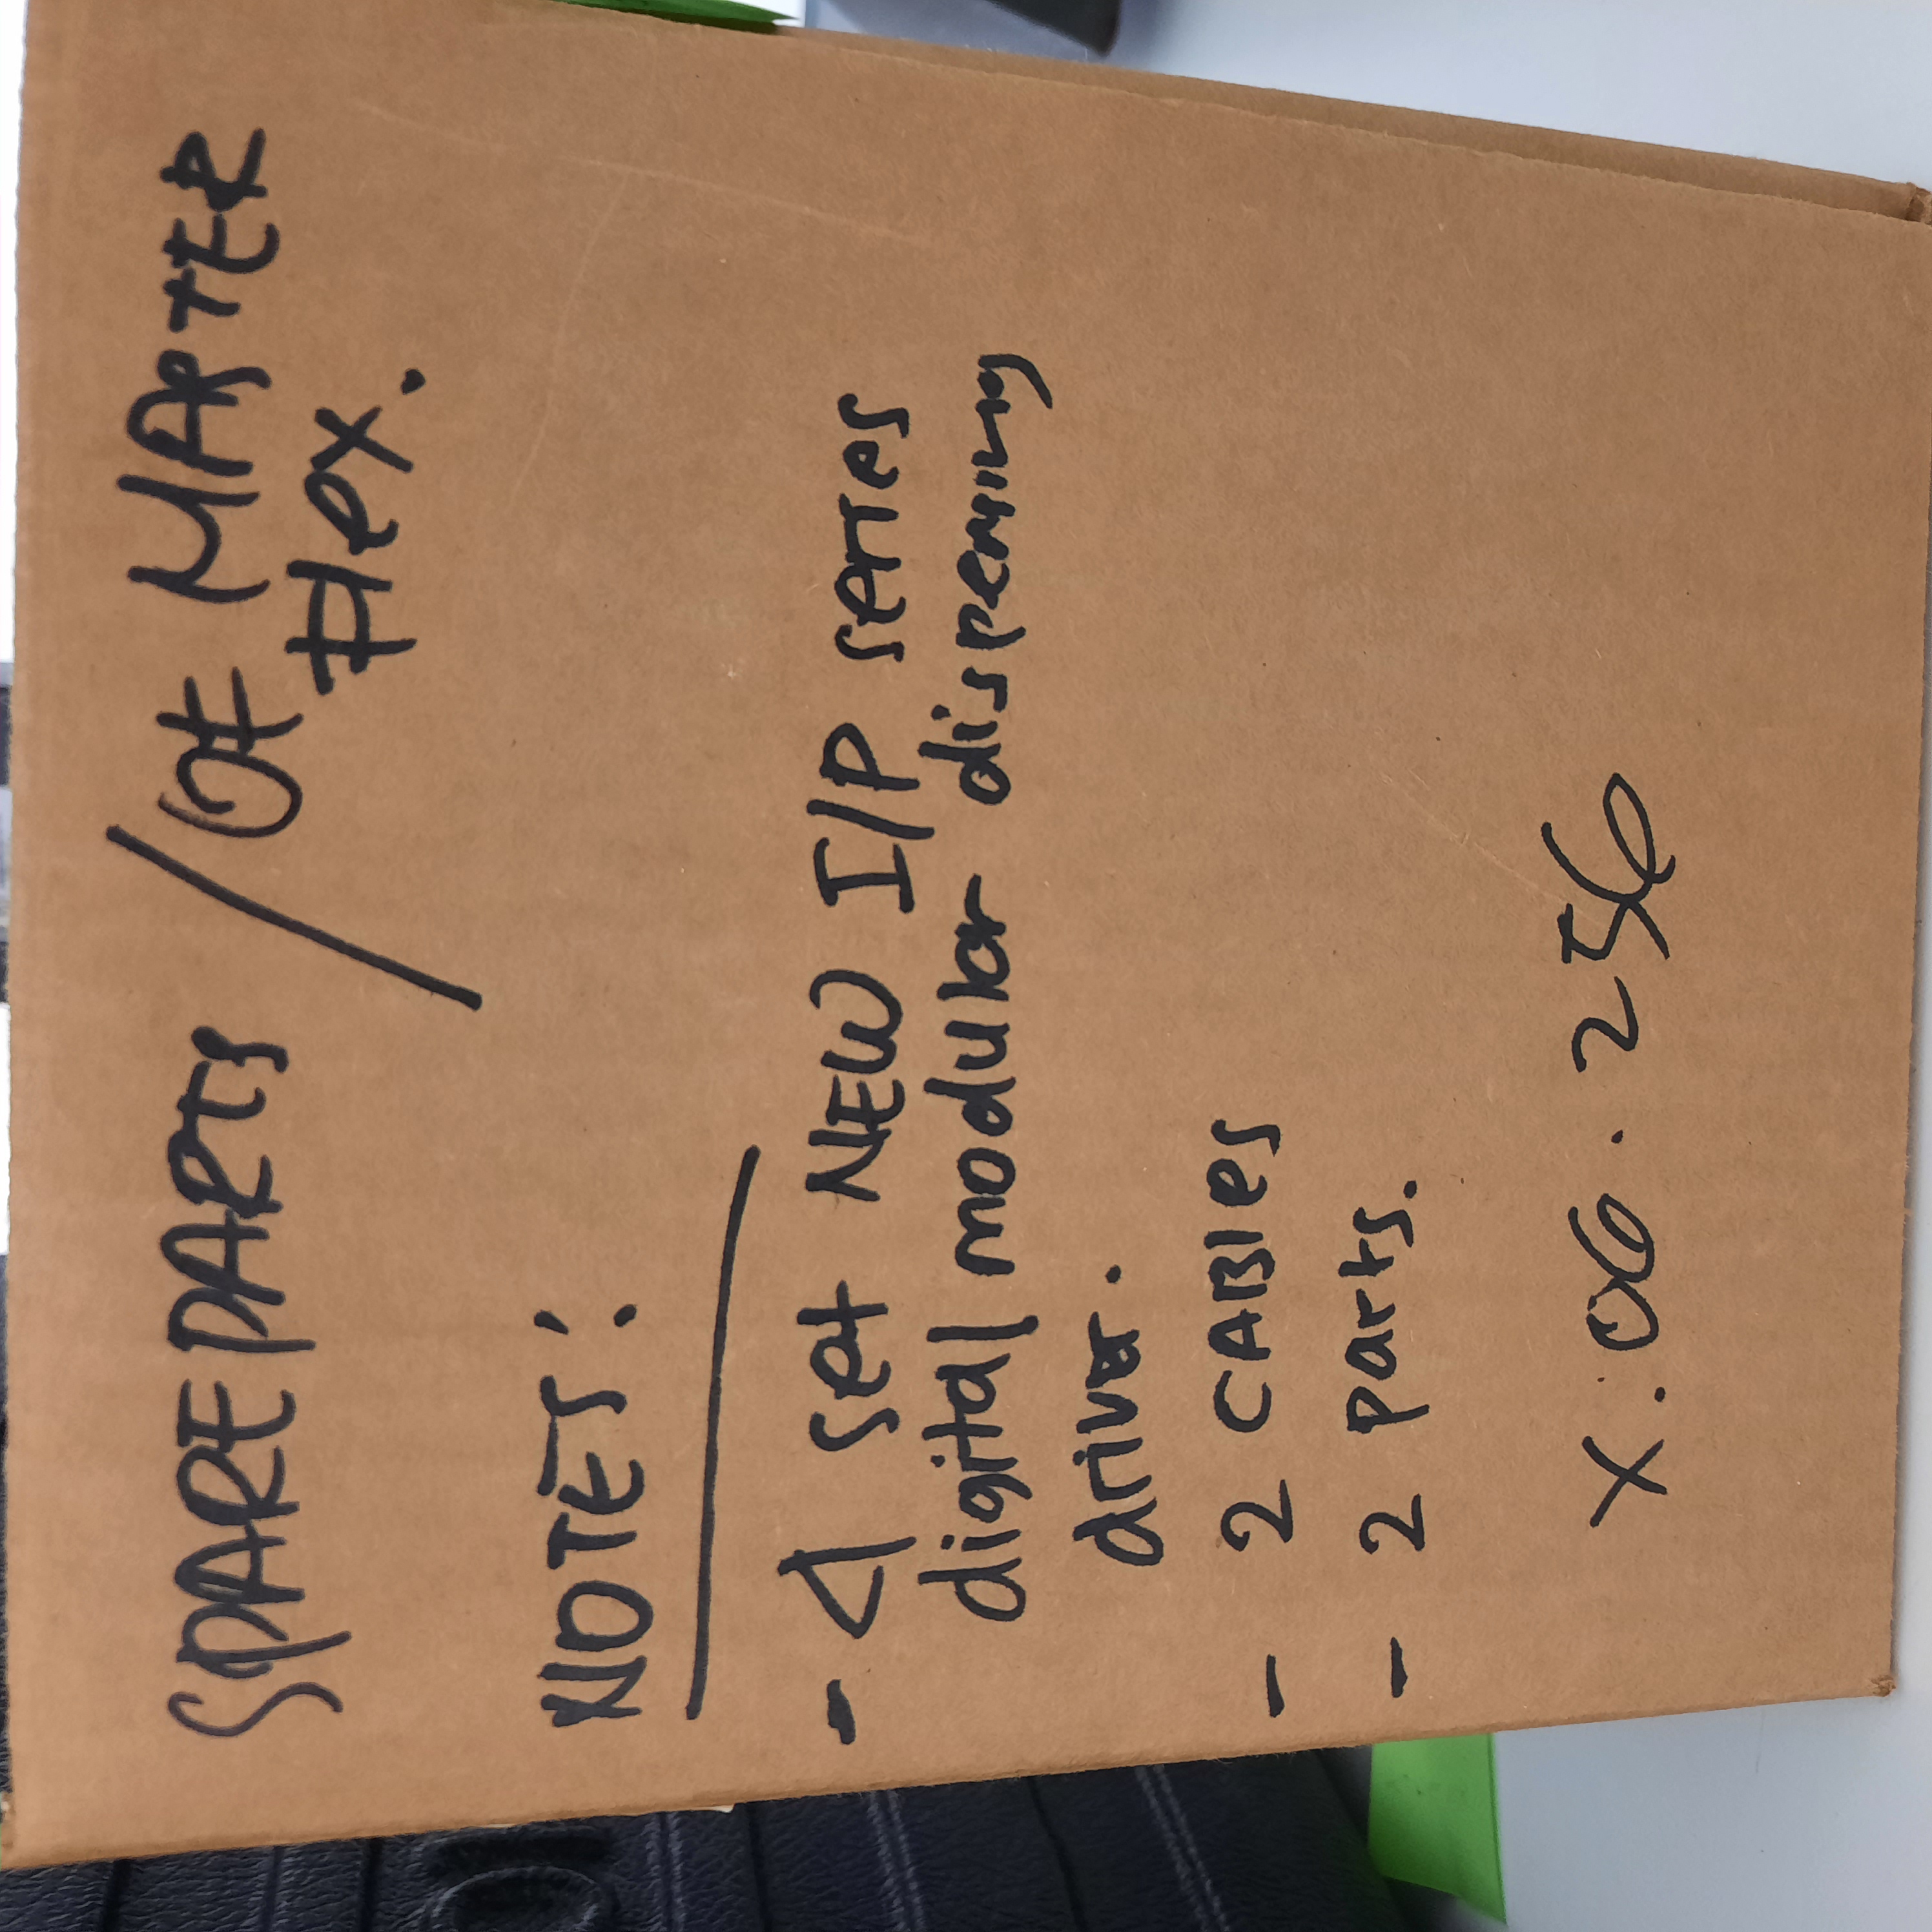 SPARE PARTS / OF MASTER
Flex.
NOTES:
- 1 set NEW I/P series
digital modular dispensing
driver.
- 2 CABles
- 2 parts.
X: 06. 256